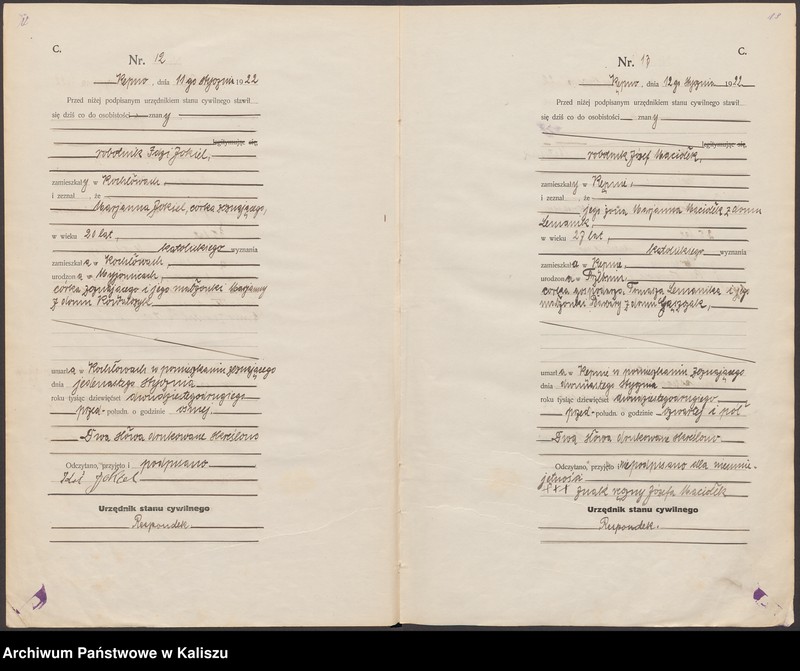 C.
Nr. 12
Kępno, dnia 11go stycznia 1922
Przed niżej podpisanym urzędnikiem stanu cywilnego stawił
się dziś co do osobistości z many
legitymując się
robotnik Idzi Jokiel,
zamieszkały w Kochłowach
i zeznał, że
Marjanna Jokiel, córka zeznającego,
w wieku 20 lat,
katolickiego wyznania
zamieszkała w Kochłowach,
urodzona w
córka zeznającego i jego małżonki Marjanny
z domu
umarła w Kochłowach w pomieszkaniu zeznającego
dnia jedenastego stycznia
roku tysiąc dziewięćset dwudziestegodrugiego
przed-połudn. o godzinie ósmej.
Dwa słowa drukowane skreślono
Odczytano, przyjęto i podpisano
Idzi Jokiel
Urzędnik stanu cywilnego
Respondek
11
C.
Nr. 13
Kępno, dnia 12go stycznia 1922
Przed niżej podpisanym urzędnikiem stanu cywilnego stawił
się dziś co do osobistości many
legitymując się
robotnik Józef Maciółek,
zamieszkały w Kępnie,
i zeznał że
jego żona Marjanna Maciółek z domu
Lemanik,
w wieku 27 lat,
katolickiego wyznania
zamieszkała w Kępnie,
urodzona w
córka Tomasza Lemanika i jego
małżonki z domu
umarła w Kępnie w pomieszkaniu zeznającego
dnia dwunastego stycznia
roku tysiąc dziewięćset dwudziestegodrugiego
przed-połudn. o godzinie czwartej i pół
Dwa słowa drukowane skreślono.
Odczytano, przyjęto i niepodpisano dla nieumie-
jętności
+++ znak ręczny Józefa Maciółek
Urzędnik stanu cywilnego
Respondek.
Archiwum Państwowe w Kaliszu